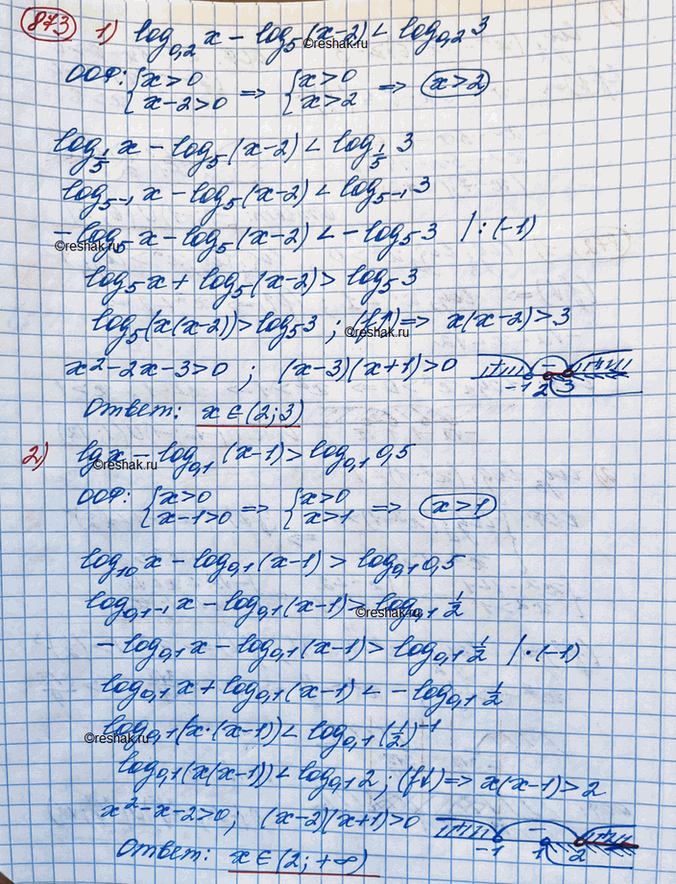 873 1) log₀,₂ x - log₅(x-2) < log₀,₂ 3
©reshak.ru
ООФ: {x>0 x-2>0 => {x>0 x>2 => x>2
log_{1/5} x - log₅(x-2) < log_{1/5} 3
log_{5⁻¹} x - log₅(x-2) < log_{5⁻¹} 3
- log₅ x - log₅(x-2) < - log₅ 3 | : (-1)
©reshak.ru
log₅ x + log₅(x-2) > log₅ 3
log₅(x(x-2)) > log₅ 3 ; (f↑) => x(x-2) > 3
©reshak.ru
x²-2x-3>0 ; (x-3)(x+1)>0 + - + -1 2 3
Ответ: x∈(2;3)
2) lg x - log₀,₁(x-1) > log₀,₁ 0,5
©reshak.ru
ООФ: {x>0 x-1>0 => {x>0 x>1 => x>1
log₁₀ x - log₀,₁(x-1) > log₀,₁ 0,5
log_{0,1⁻¹} x - log₀,₁(x-1) > log₀,₁ 1/2
©reshak.ru
- log₀,₁ x - log₀,₁(x-1) > log₀,₁ 1/2 | · (-1)
log₀,₁ x + log₀,₁(x-1) < - log₀,₁ 1/2
log₀,₁(x·(x-1)) < log₀,₁ (1/2)⁻¹
©reshak.ru
log₀,₁(x(x-1)) < log₀,₁ 2 ; (f↓) => x(x-1) > 2
x²-x-2>0 ; (x-2)(x+1)>0 + - + -1 1 2
Ответ: x∈(2;+∞)